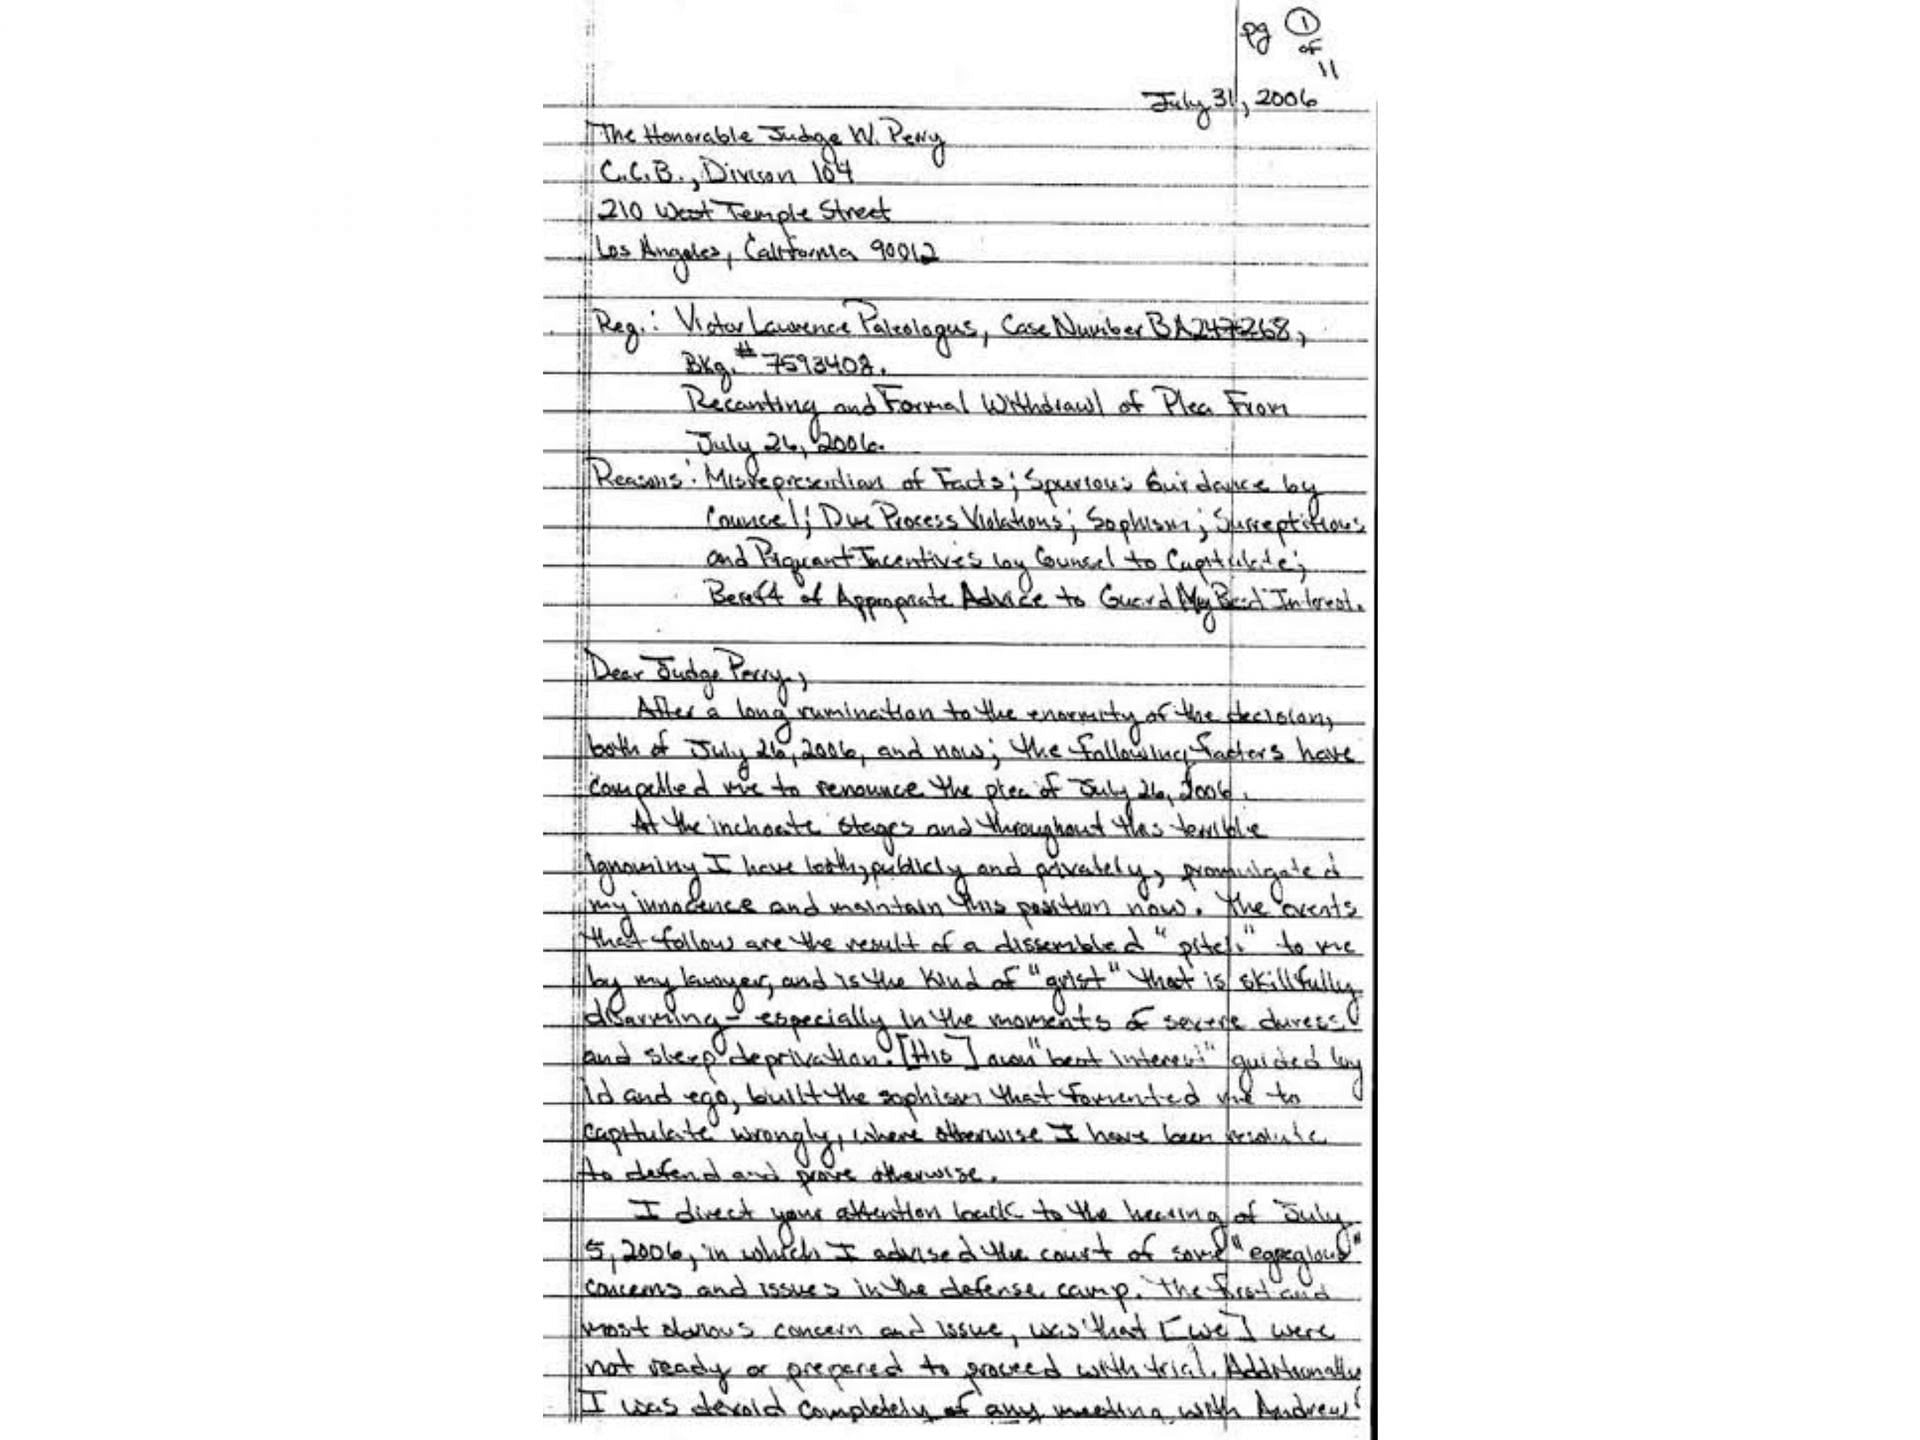 pg 1
of
11
July 31, 2006
The Honorable Judge W. Perry
C.C.B., Divison 104
210 West Temple Street
Los Angeles, California 90012
Reg.: Victor Lawrence Paleologus, Case Number BA247268,
Bkg. # 7593408.
Recanting and Formal Withdrawl of Plea From
July 26, 2006.
Reasons: Misrepresentian of Facts; Spurious Guidance by
Councel; Due Process Violations; Sophism; Surreptitious
and Piqueant Incentives by Counsel to Capitulate;
Bereft of Appropriate Advice to Guard My Best Interest.
Dear Judge Perry,
After a long rumination to the enormity of the decision,
both of July 26, 2006, and now; the following factors have
compelled me to renounce the plea of July 26, 2006.
At the inchoate stages and throughout this terrible
ignominy I have both, publicly and privately, promulgated
my innocence and maintain this position now. The events
that follow are the result of a dissembled "pitch" to me
by my lawyer, and is the kind of "grist" that is skillfully
disarming - especially in the moments of severe duress
and sleep deprivation. [His] own "best interest" guided by
id and ego, built the sophism that fomented me to
capitulate wrongly, where otherwise I have been resolute
to defend and prove otherwise.
I direct your attention back to the hearing of July
5, 2006, in which I advised the court of some "egregious"
concerns and issues in the defense camp. The first and
most obvious concern and issue, was that [we] were
not ready or prepared to proceed with trial. Additionally
I was devoid completely of any meeting with Andrew